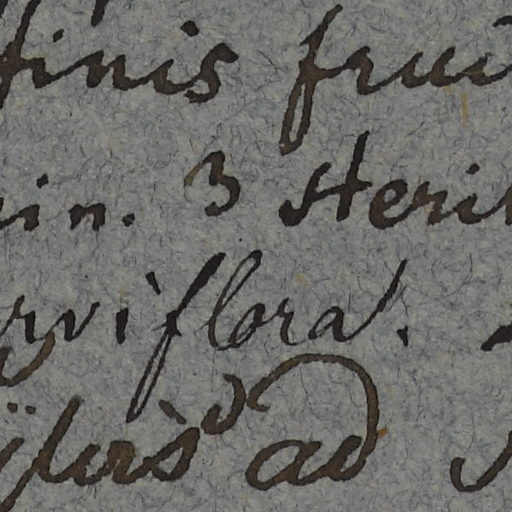 finis frui
in. 3 steri
rviflora.
ad